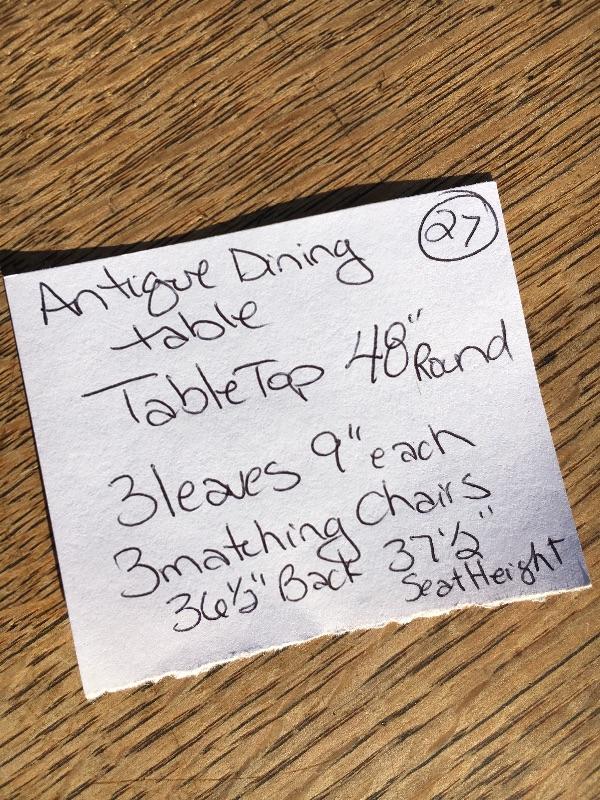 27
Antique Dining
table
Table Top 48" Round
3 leaves 9" each
3 matching Chairs
36 1/2" Back 37 1/2" Seat Height